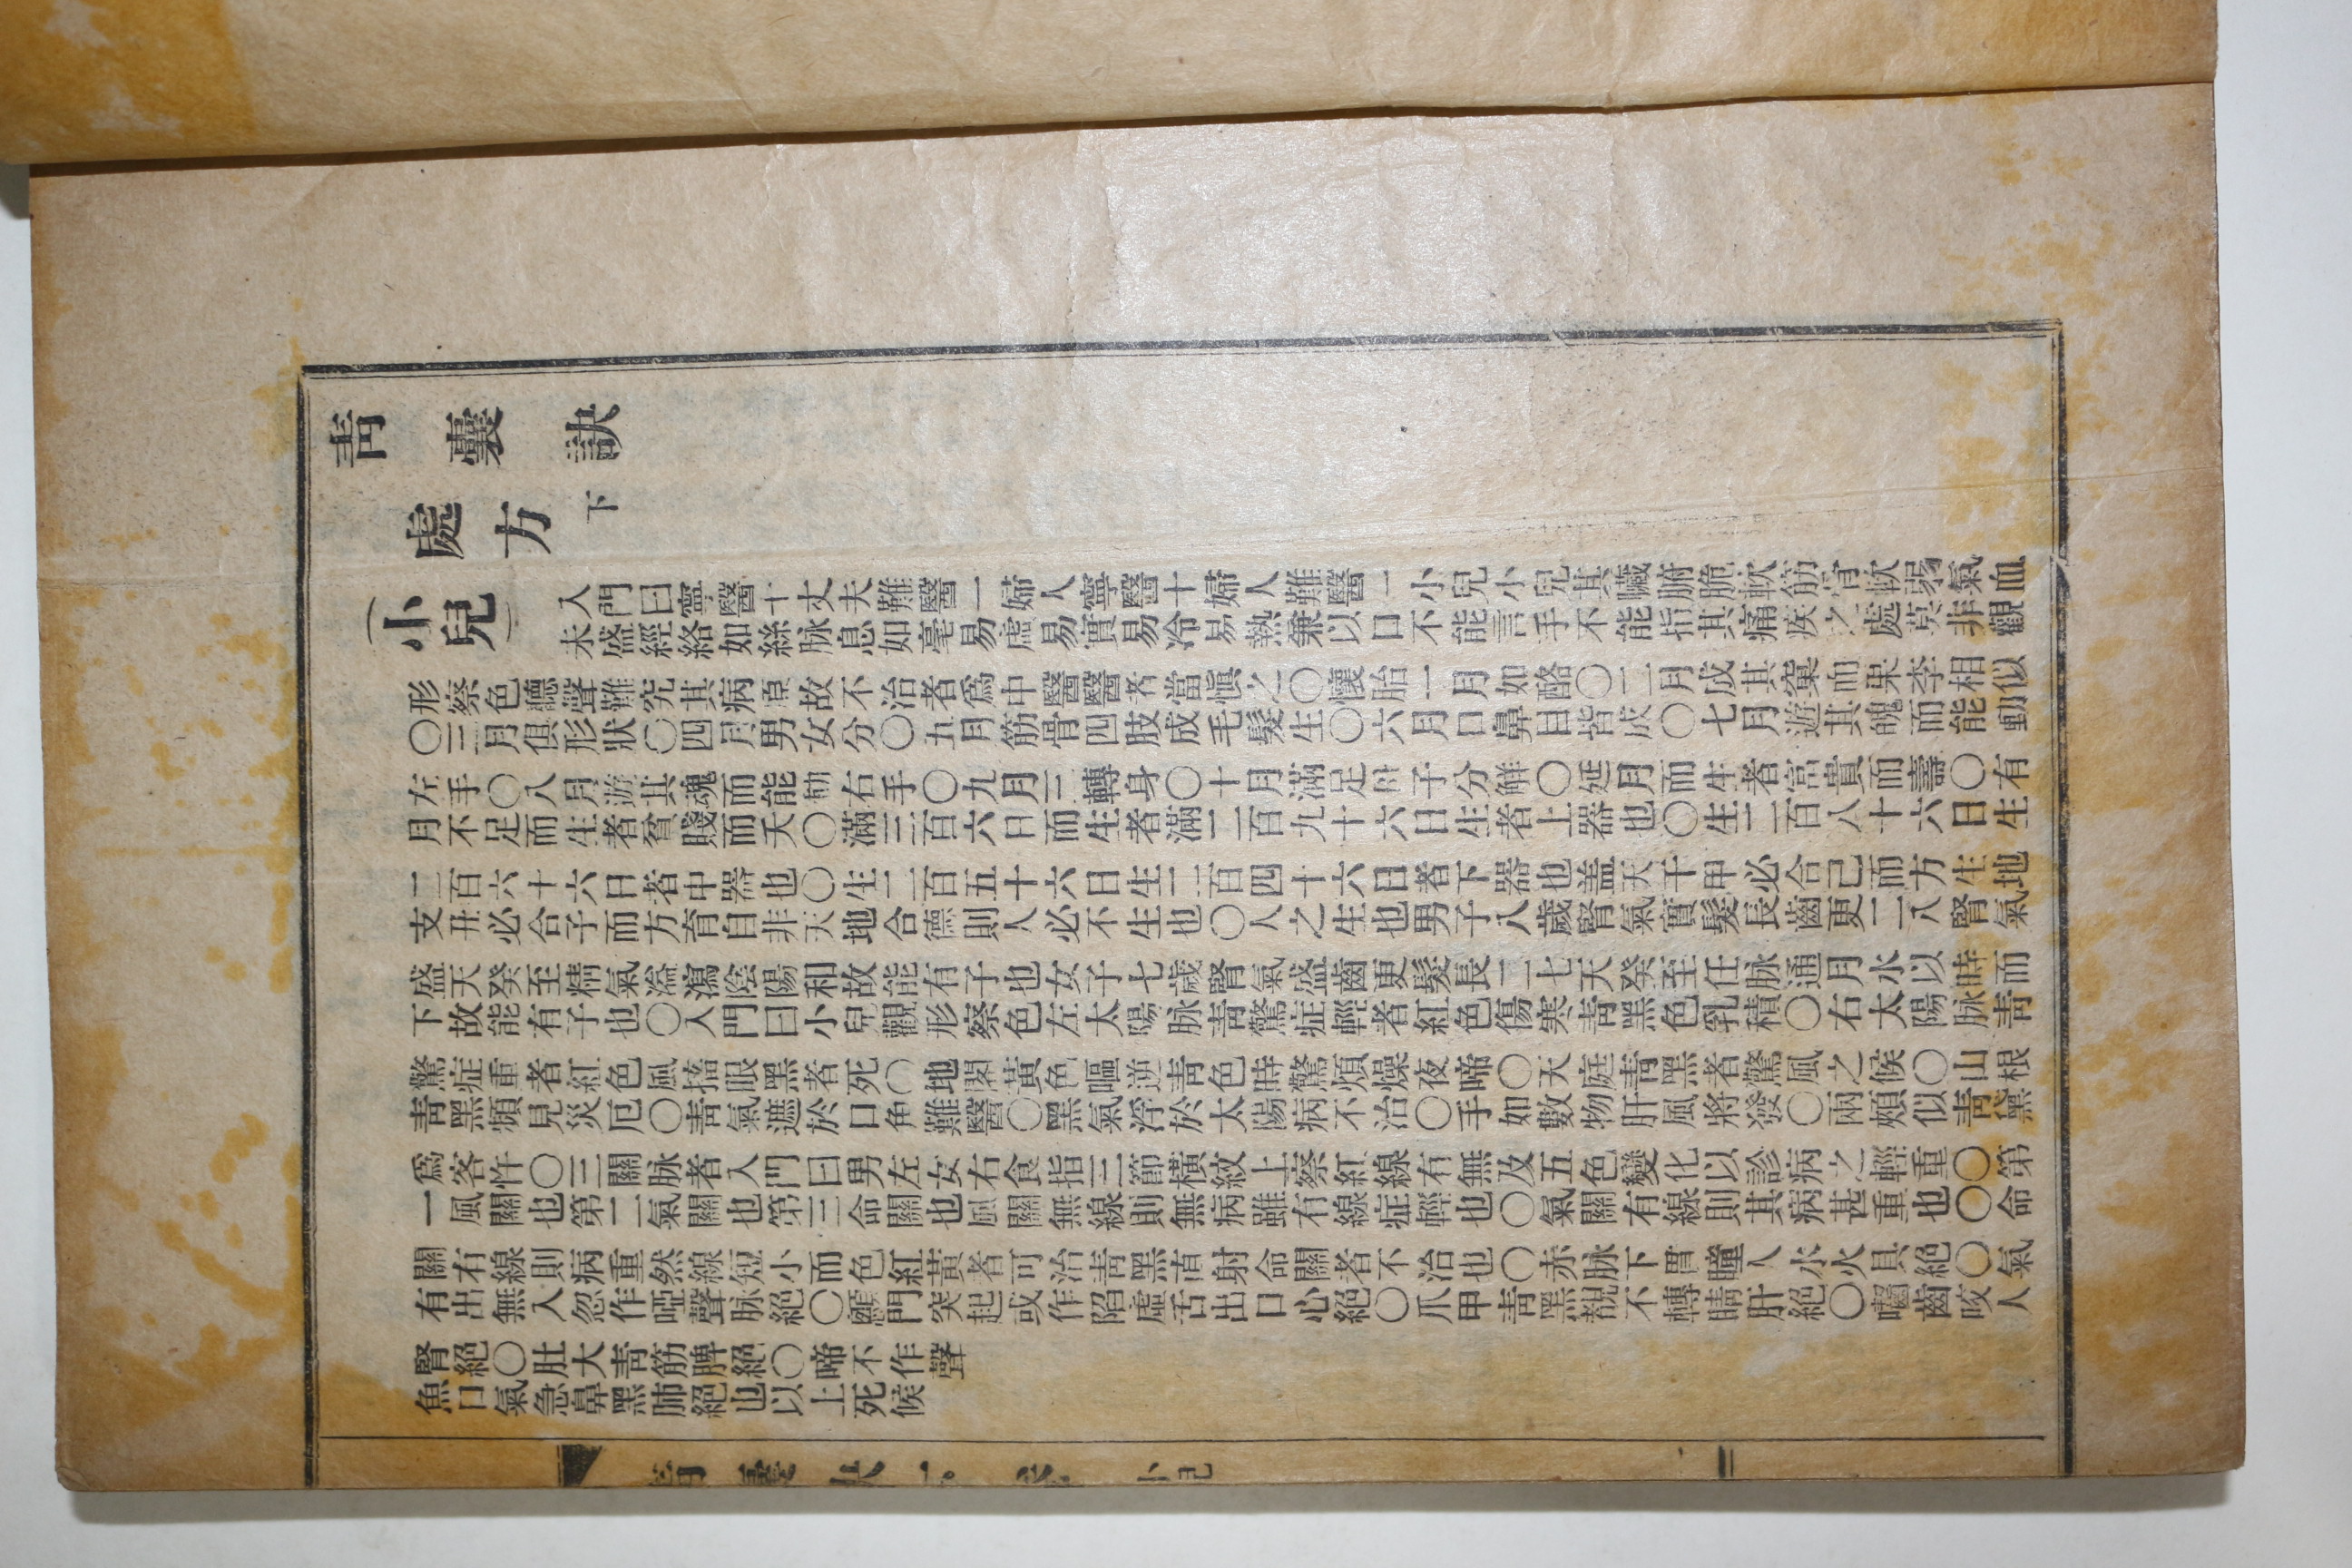 靑囊訣
處方下
(小兒)
入門曰寧醫十丈夫難醫一婦人寧醫十婦人難醫一小兒小兒其臟腑脆軟筋骨軟弱氣血
未盛經絡如絲脉息如毫易虛易實易冷易熱兼以口不能言手不能指其痛疾之處莫非觀
形察色聽聲難究其病原故不治者爲中醫醫者當愼之〇懷胎一月如酪〇二月成其窠而果李相似
〇三月俱形狀〇四月男女分〇五月筋骨四肢成毛髮生〇六月口鼻目皆成〇七月遊其魄而能動
左手〇八月遊其魂而能動右手〇九月三轉身〇十月滿足母子分觧〇延月而生者富貴而壽〇有
月不足而生者貧賤而夭〇滿三百六日而生者滿二百九十六日生者上器也〇生二百八十六日生
二百六十六日者中器也〇生二百五十六日生二百四十六日者下器也盖天干甲必合己而方生地
支丑必合子而方育自非天地合德則人必不生也〇人之生也男子八歲腎氣實髮長齒更二八腎氣
盛天癸至精氣溢瀉陰陽和故能有子也女子七歲腎氣盛齒更髮長二七天癸至任脉通月水以時而
下故能有子也〇入門曰小兒觀形察色左太陽脉靑驚症輕者紅色傷寒靑黑色乳積〇右太陽脉靑
驚症重者紅色風搐眼黑者死〇地閣黃色嘔逆靑色時驚煩燥夜啼〇天庭靑黑者驚風之候〇山根
靑黑頻見災厄〇靑氣遮於口角難醫〇黑氣浮於太陽病不治〇手如數物肝風將發〇兩頰似靑黛
爲客忤〇三關脉者入門曰男左女右食指三節橫紋上察紅線有無及五色變化以診病之輕重〇第
一風關也第二氣關也第三命關也風關無線則無病雖有線症輕也〇氣關有線則其病甚重也〇命
關有線則病重然線短小而色紅黃者可治靑黑直射命關者不治也〇赤脉下貫瞳人水火具絕〇氣
有出無入忽作啞聲脉絕〇顖門突起或作陷虛舌出口心絕〇爪甲靑黑覩不轉睛肝絕〇嚙齒咬人
腎絕〇肚大靑筋脾絕〇啼不作聲
魚口氣急鼻黑肺絕也以上死候